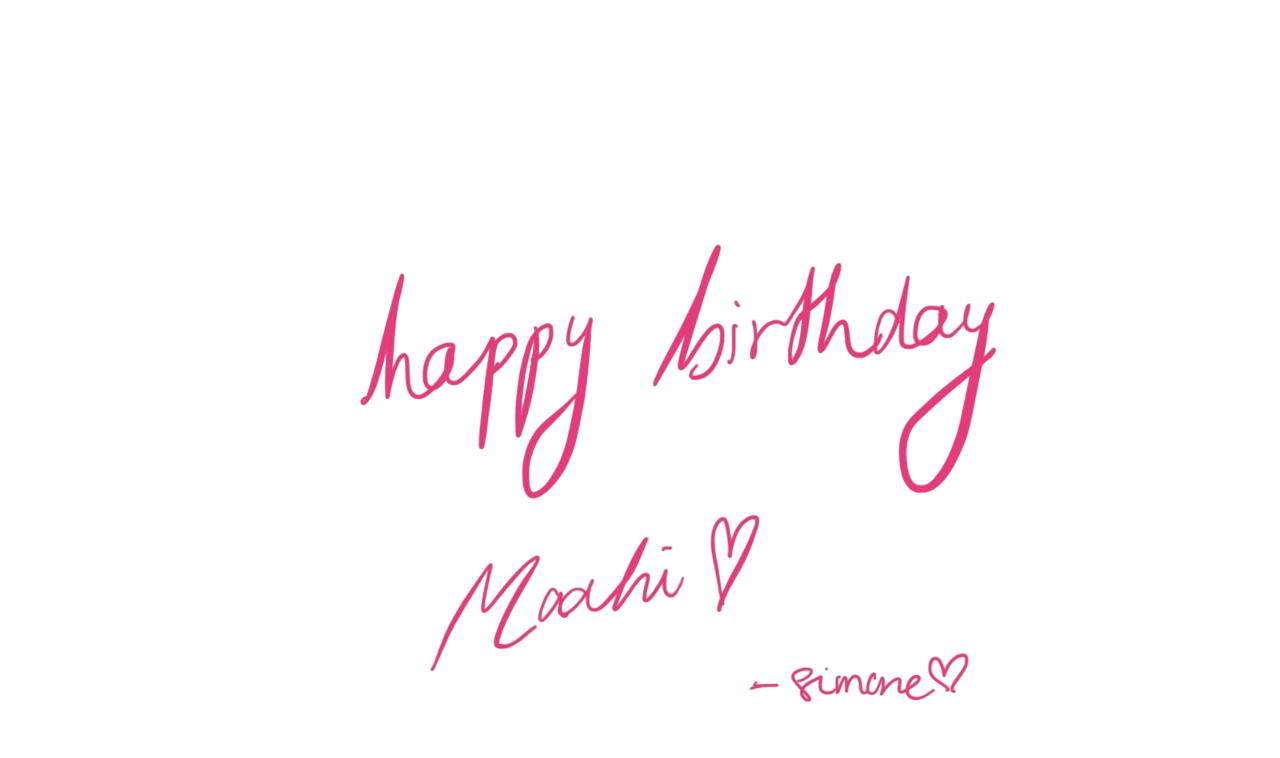 happy birthday
Maahi ♡
- Simone ♡